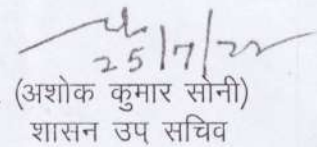 25/7/22
(अशोक कुमार सोनी)
शासन उप सचिव